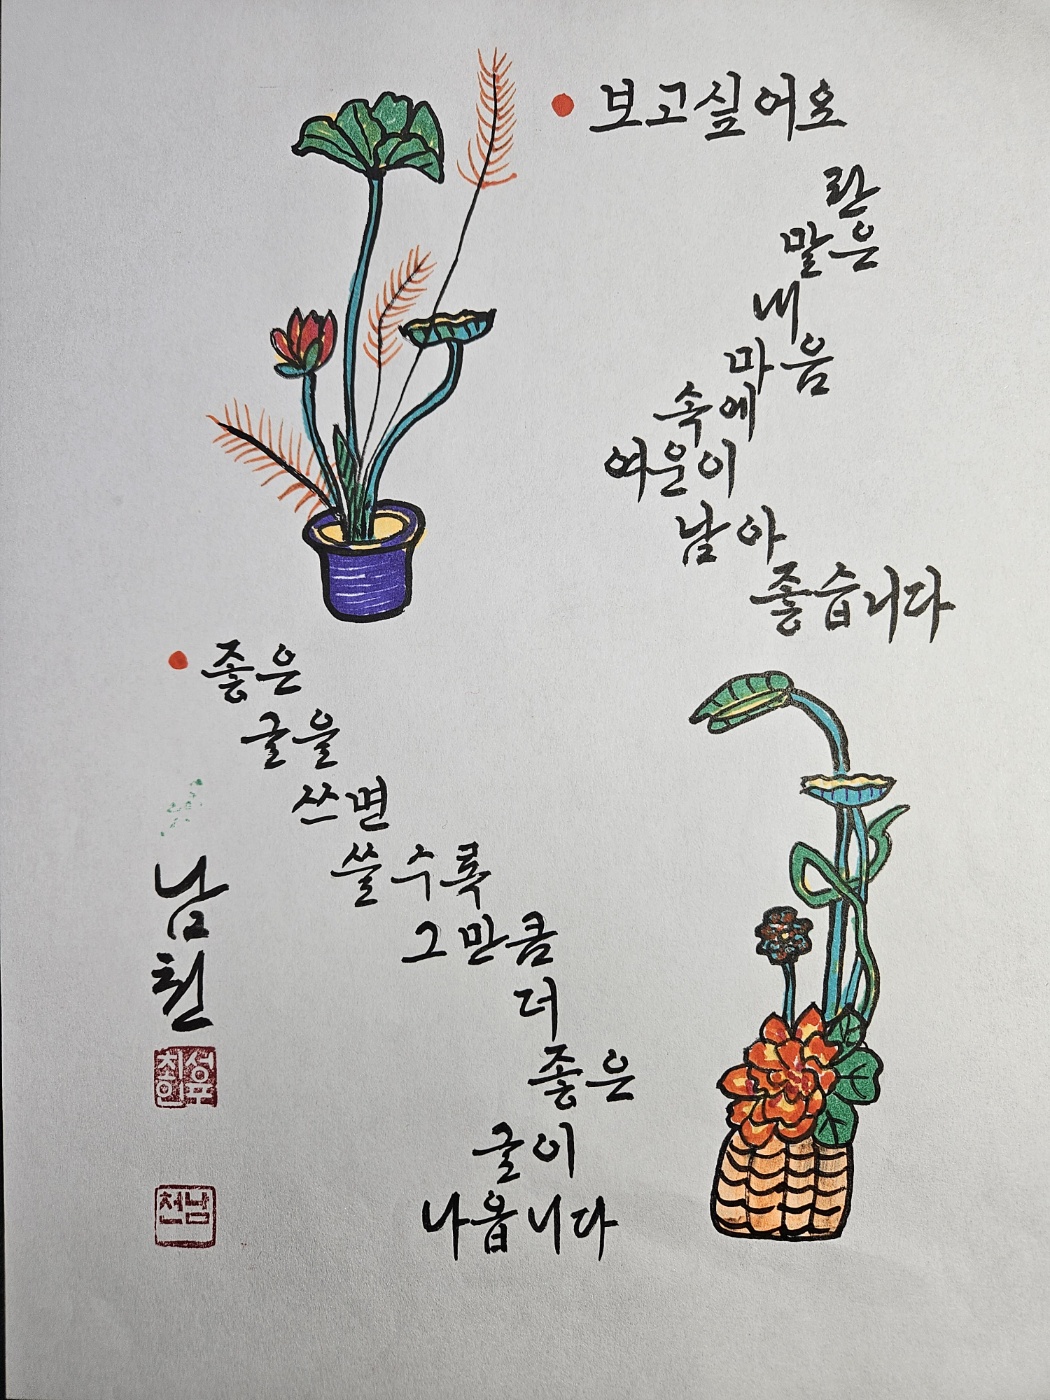 보고싶어요
란
말은
내
마음
속에
여운이
남아
좋습니다
좋은
글을
쓰면
쓸수록
그만큼
더
좋은
글이
나옵니다
남천
천남